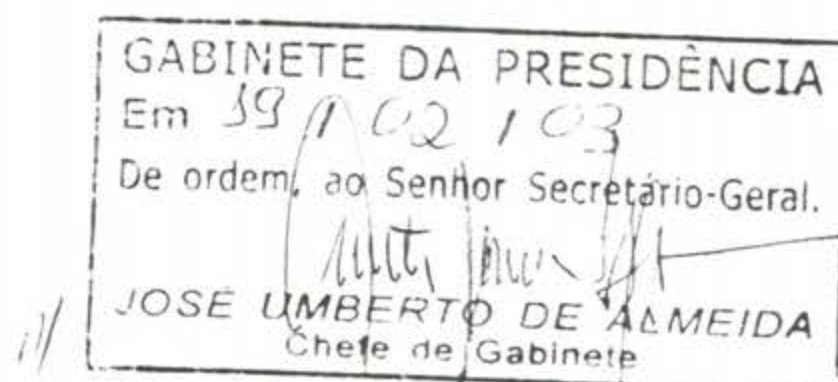 GABINETE DA PRESIDÊNCIA
Em 19 / 02 / 03
De ordem, ao Senhor Secretário-Geral.
JOSÉ UMBERTO DE ALMEIDA
Chefe de Gabinete